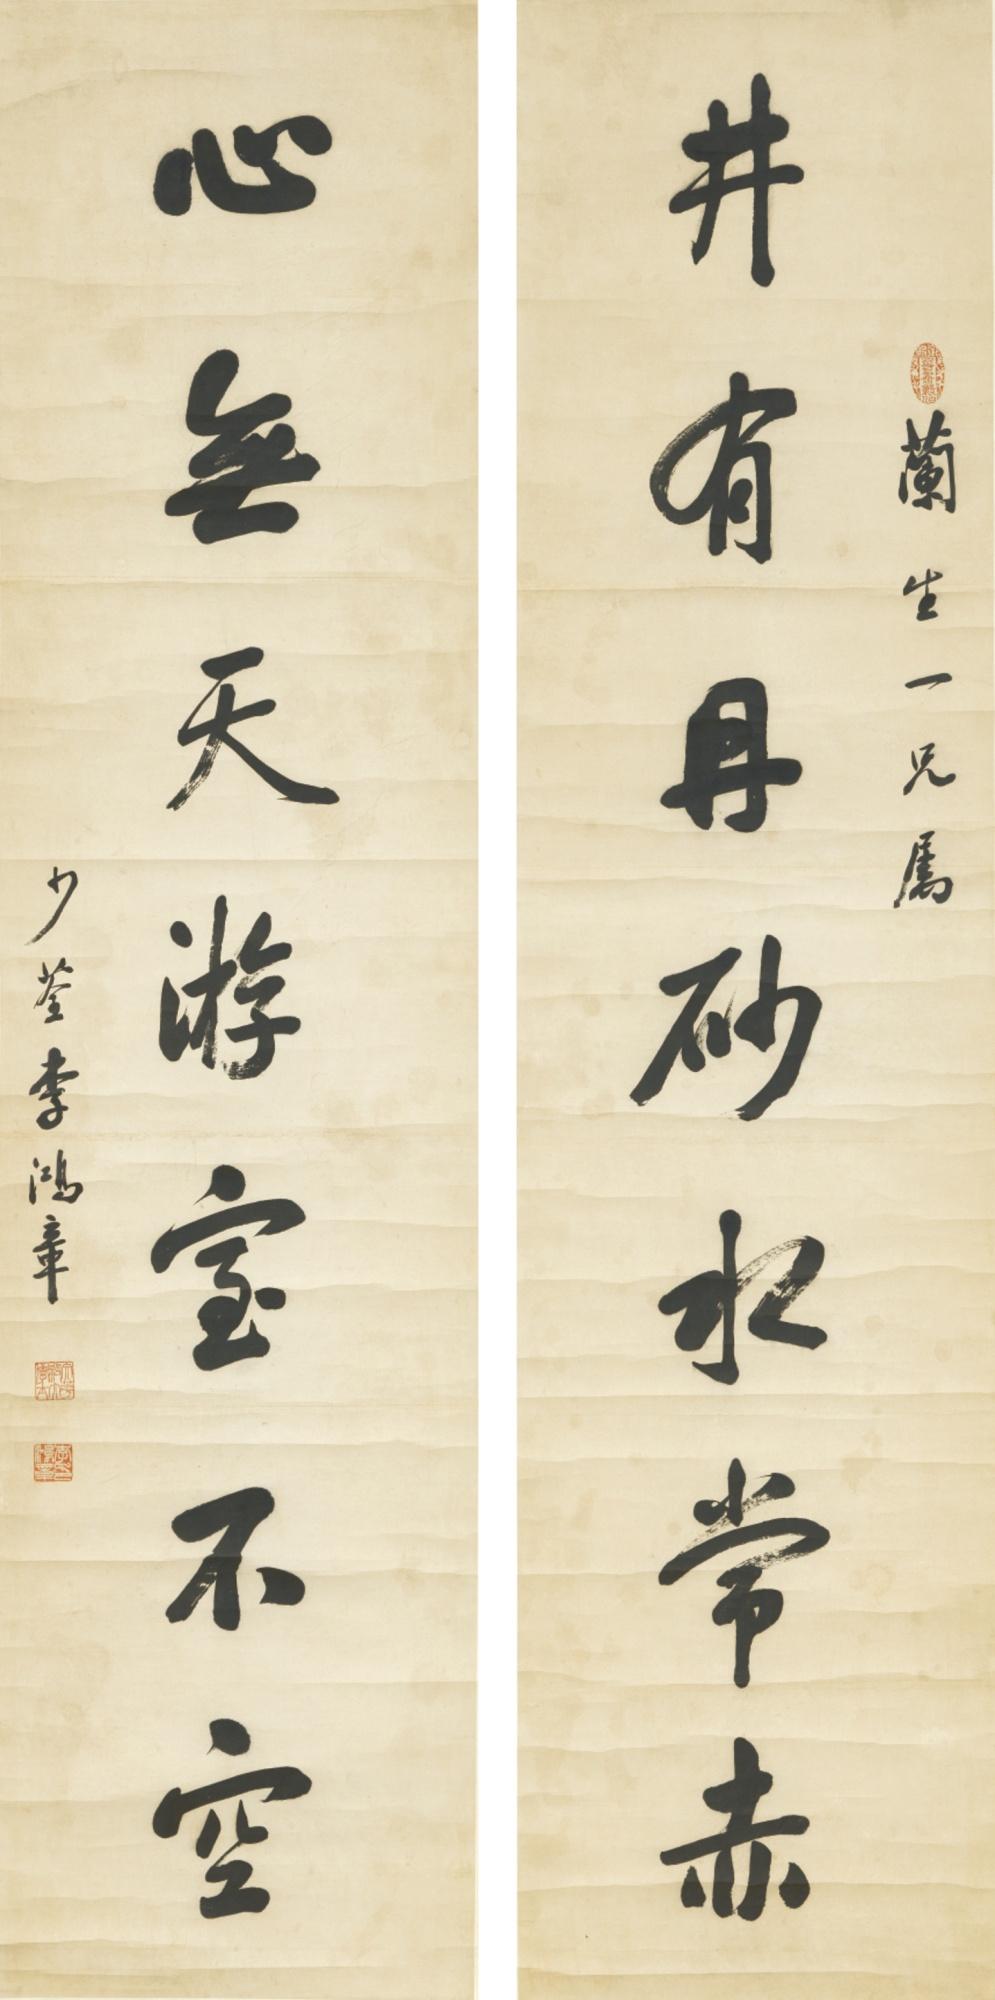 蘭生一兄屬
井有丹砂水常赤
心無天游室不空
少荃李鴻章